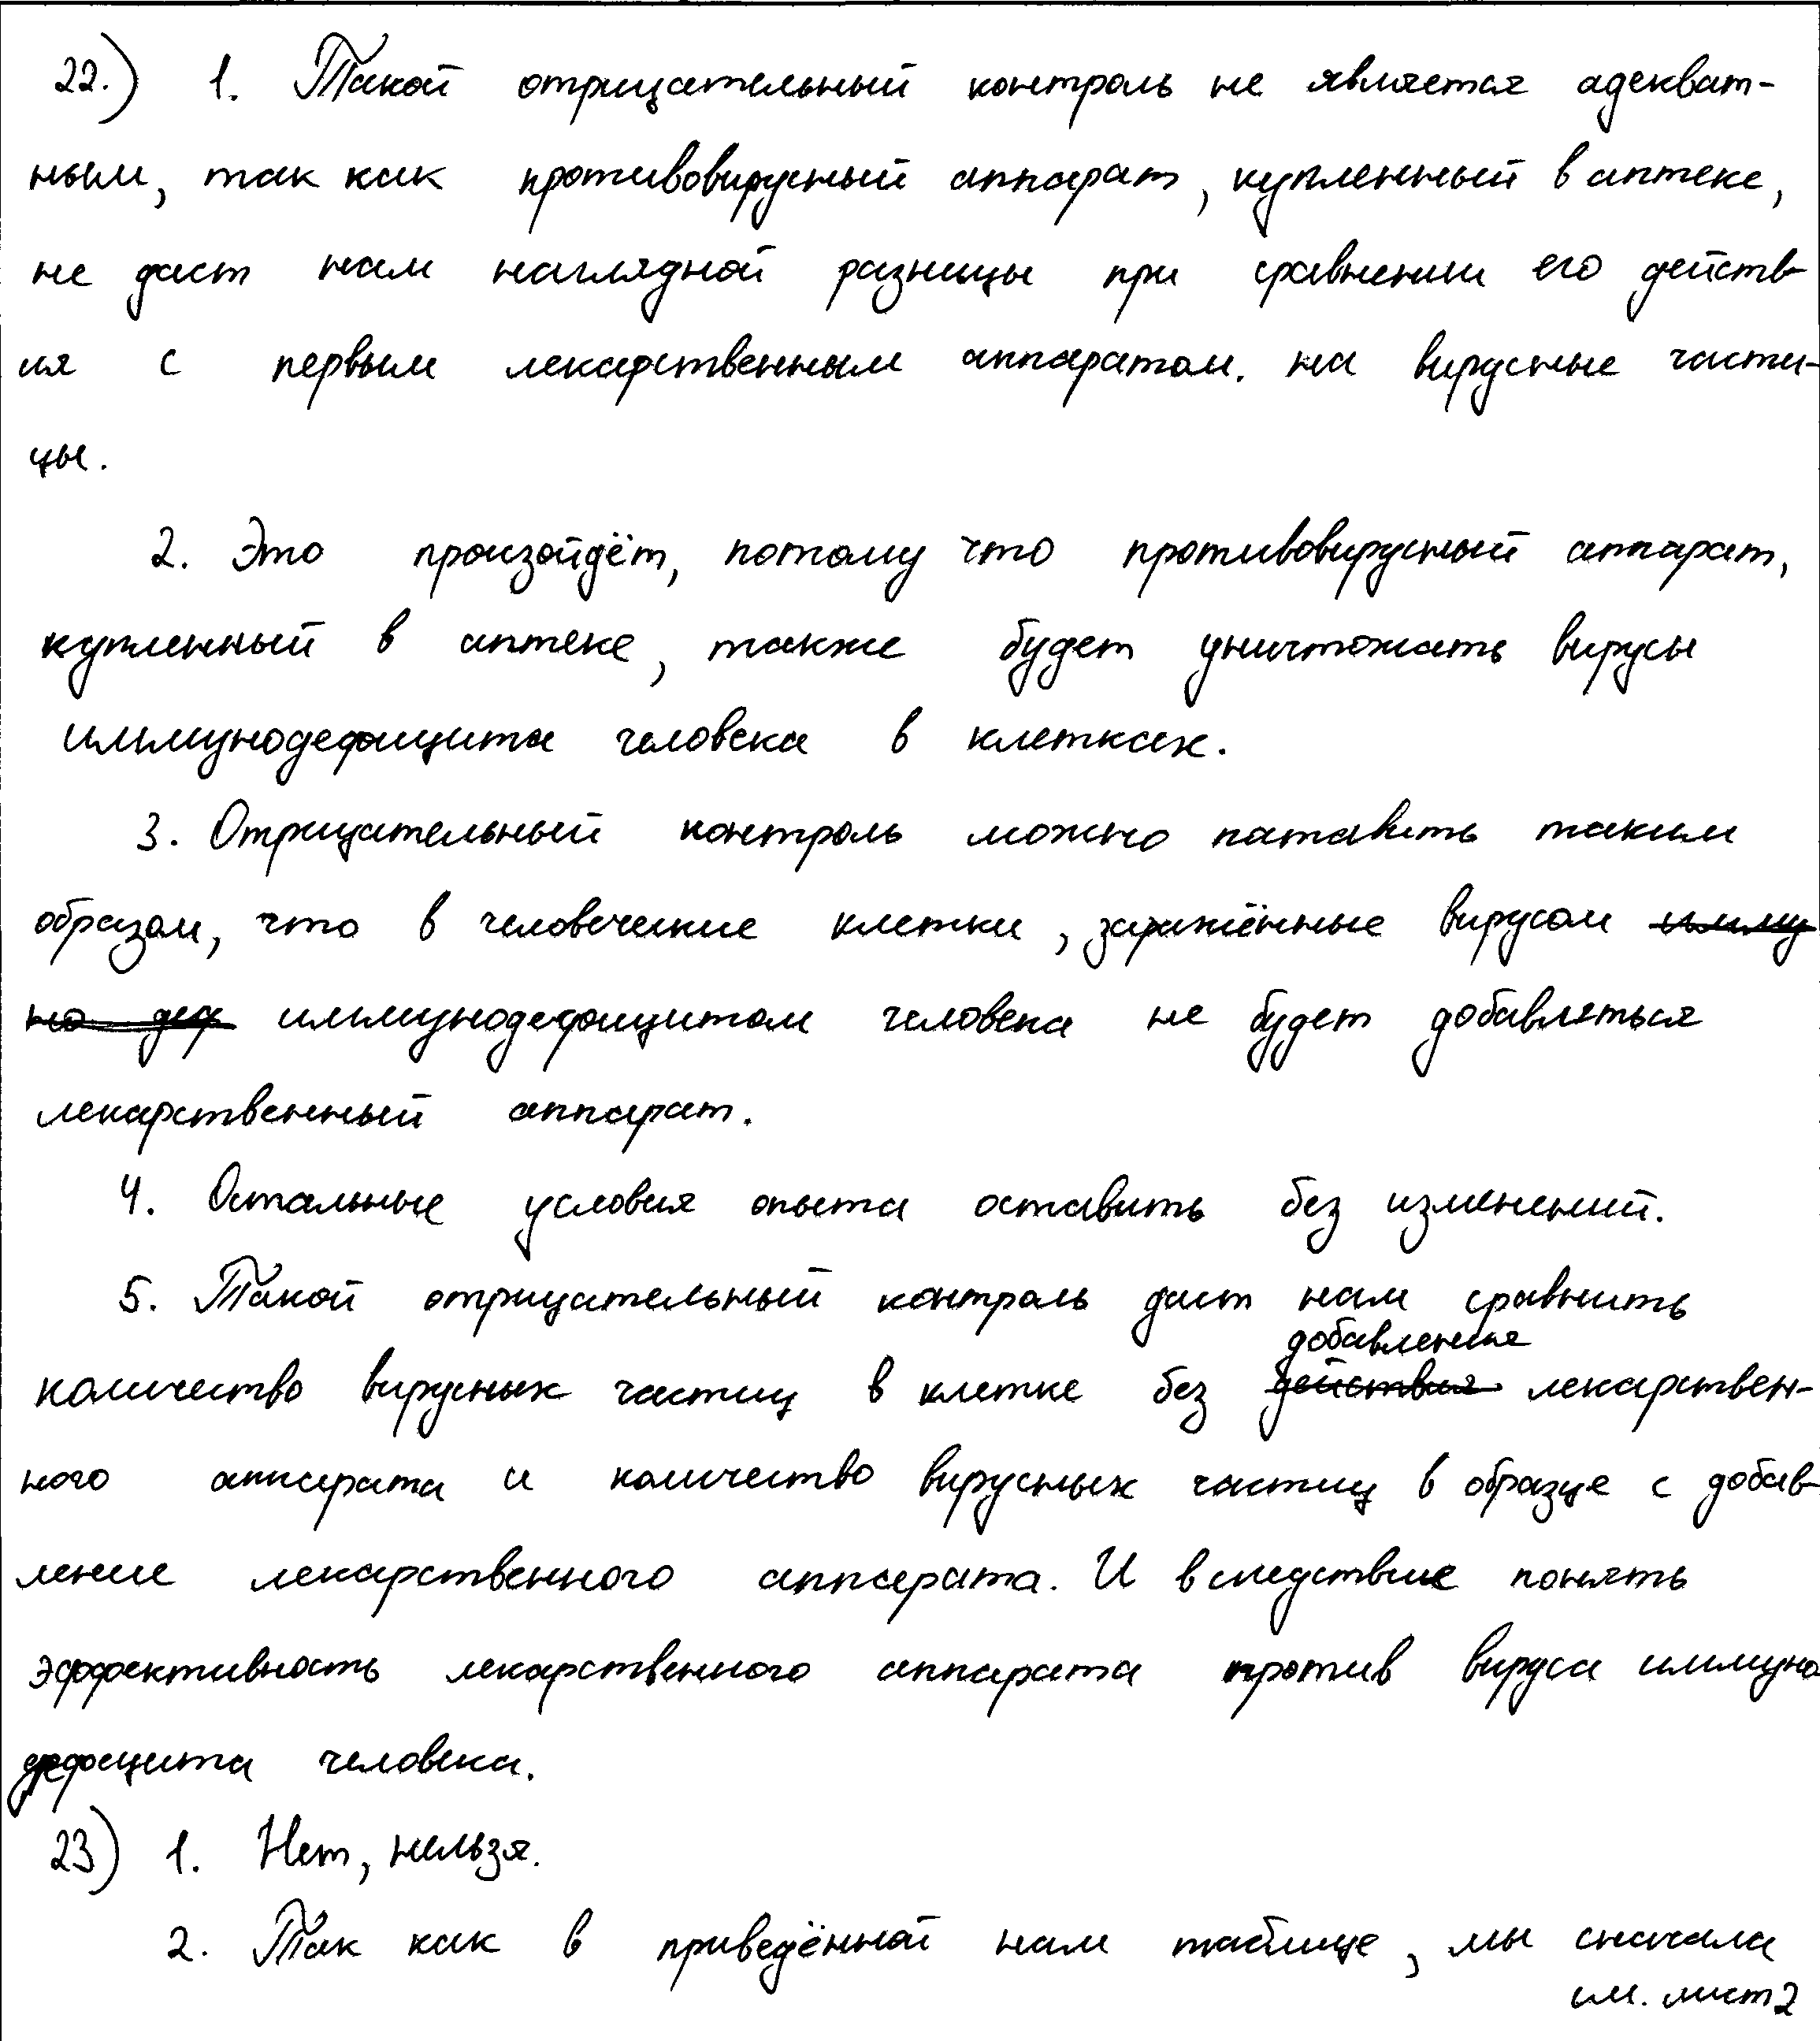 22.) 1. Такой отрицательный контроль не является адекват-
ным, так как противовирусный аппарат, купленный в аптеке,
не даст нам наглядной разницы при сравнении его действ-
ия с первым лекарственным аппаратом. на вирусные части-
цы.
2. Это произойдёт, потому что противовирусный аппарат,
купленный в аптеке, также будет уничтожать вирусы
иммунодефицита человека в клетках.
3. Отрицательный контроль можно поставить таким
образом, что в человеческие клетки, заражённые вирусом имму
но деф иммунодефицитом человека не будет добавляться
лекарственный аппарат.
4. Остальные условия опыта оставить без изменений.
5. Такой отрицательный контроль даст нам сравнить
добавления
количество вирусных частиц в клетке без действия лекарствен-
ного аппарата и количество вирусных частиц в образце с добав-
ление лекарственного аппарата. И вследствие понять
эффективность лекарственного аппарата против вируса иммуно
дефицита человека.
23) 1. Нет, нельзя.
2. Так как в приведённой нам таблице, мы сначала
см. лист 2